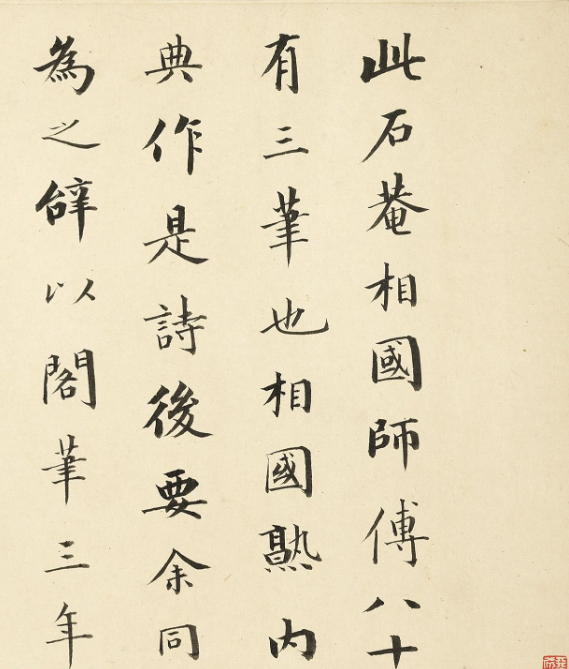 此石菴相國師傅八十
有三筆也相國熟内
典作是詩後要余同
為之辝以閣筆三年